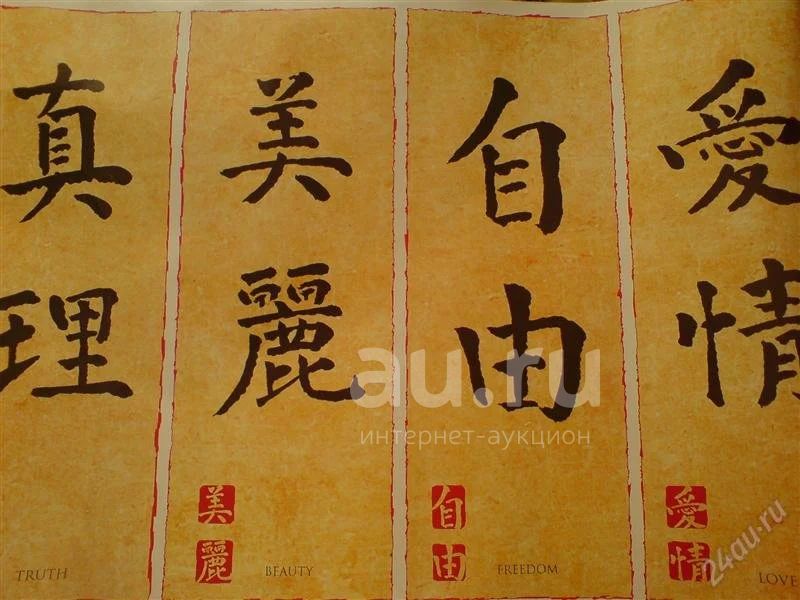 真理
TRUTH
美麗
美麗
BEAUTY
自由
自由
FREEDOM
愛情
愛情
LOVE
au.ru
интернет-аукцион
24au.ru